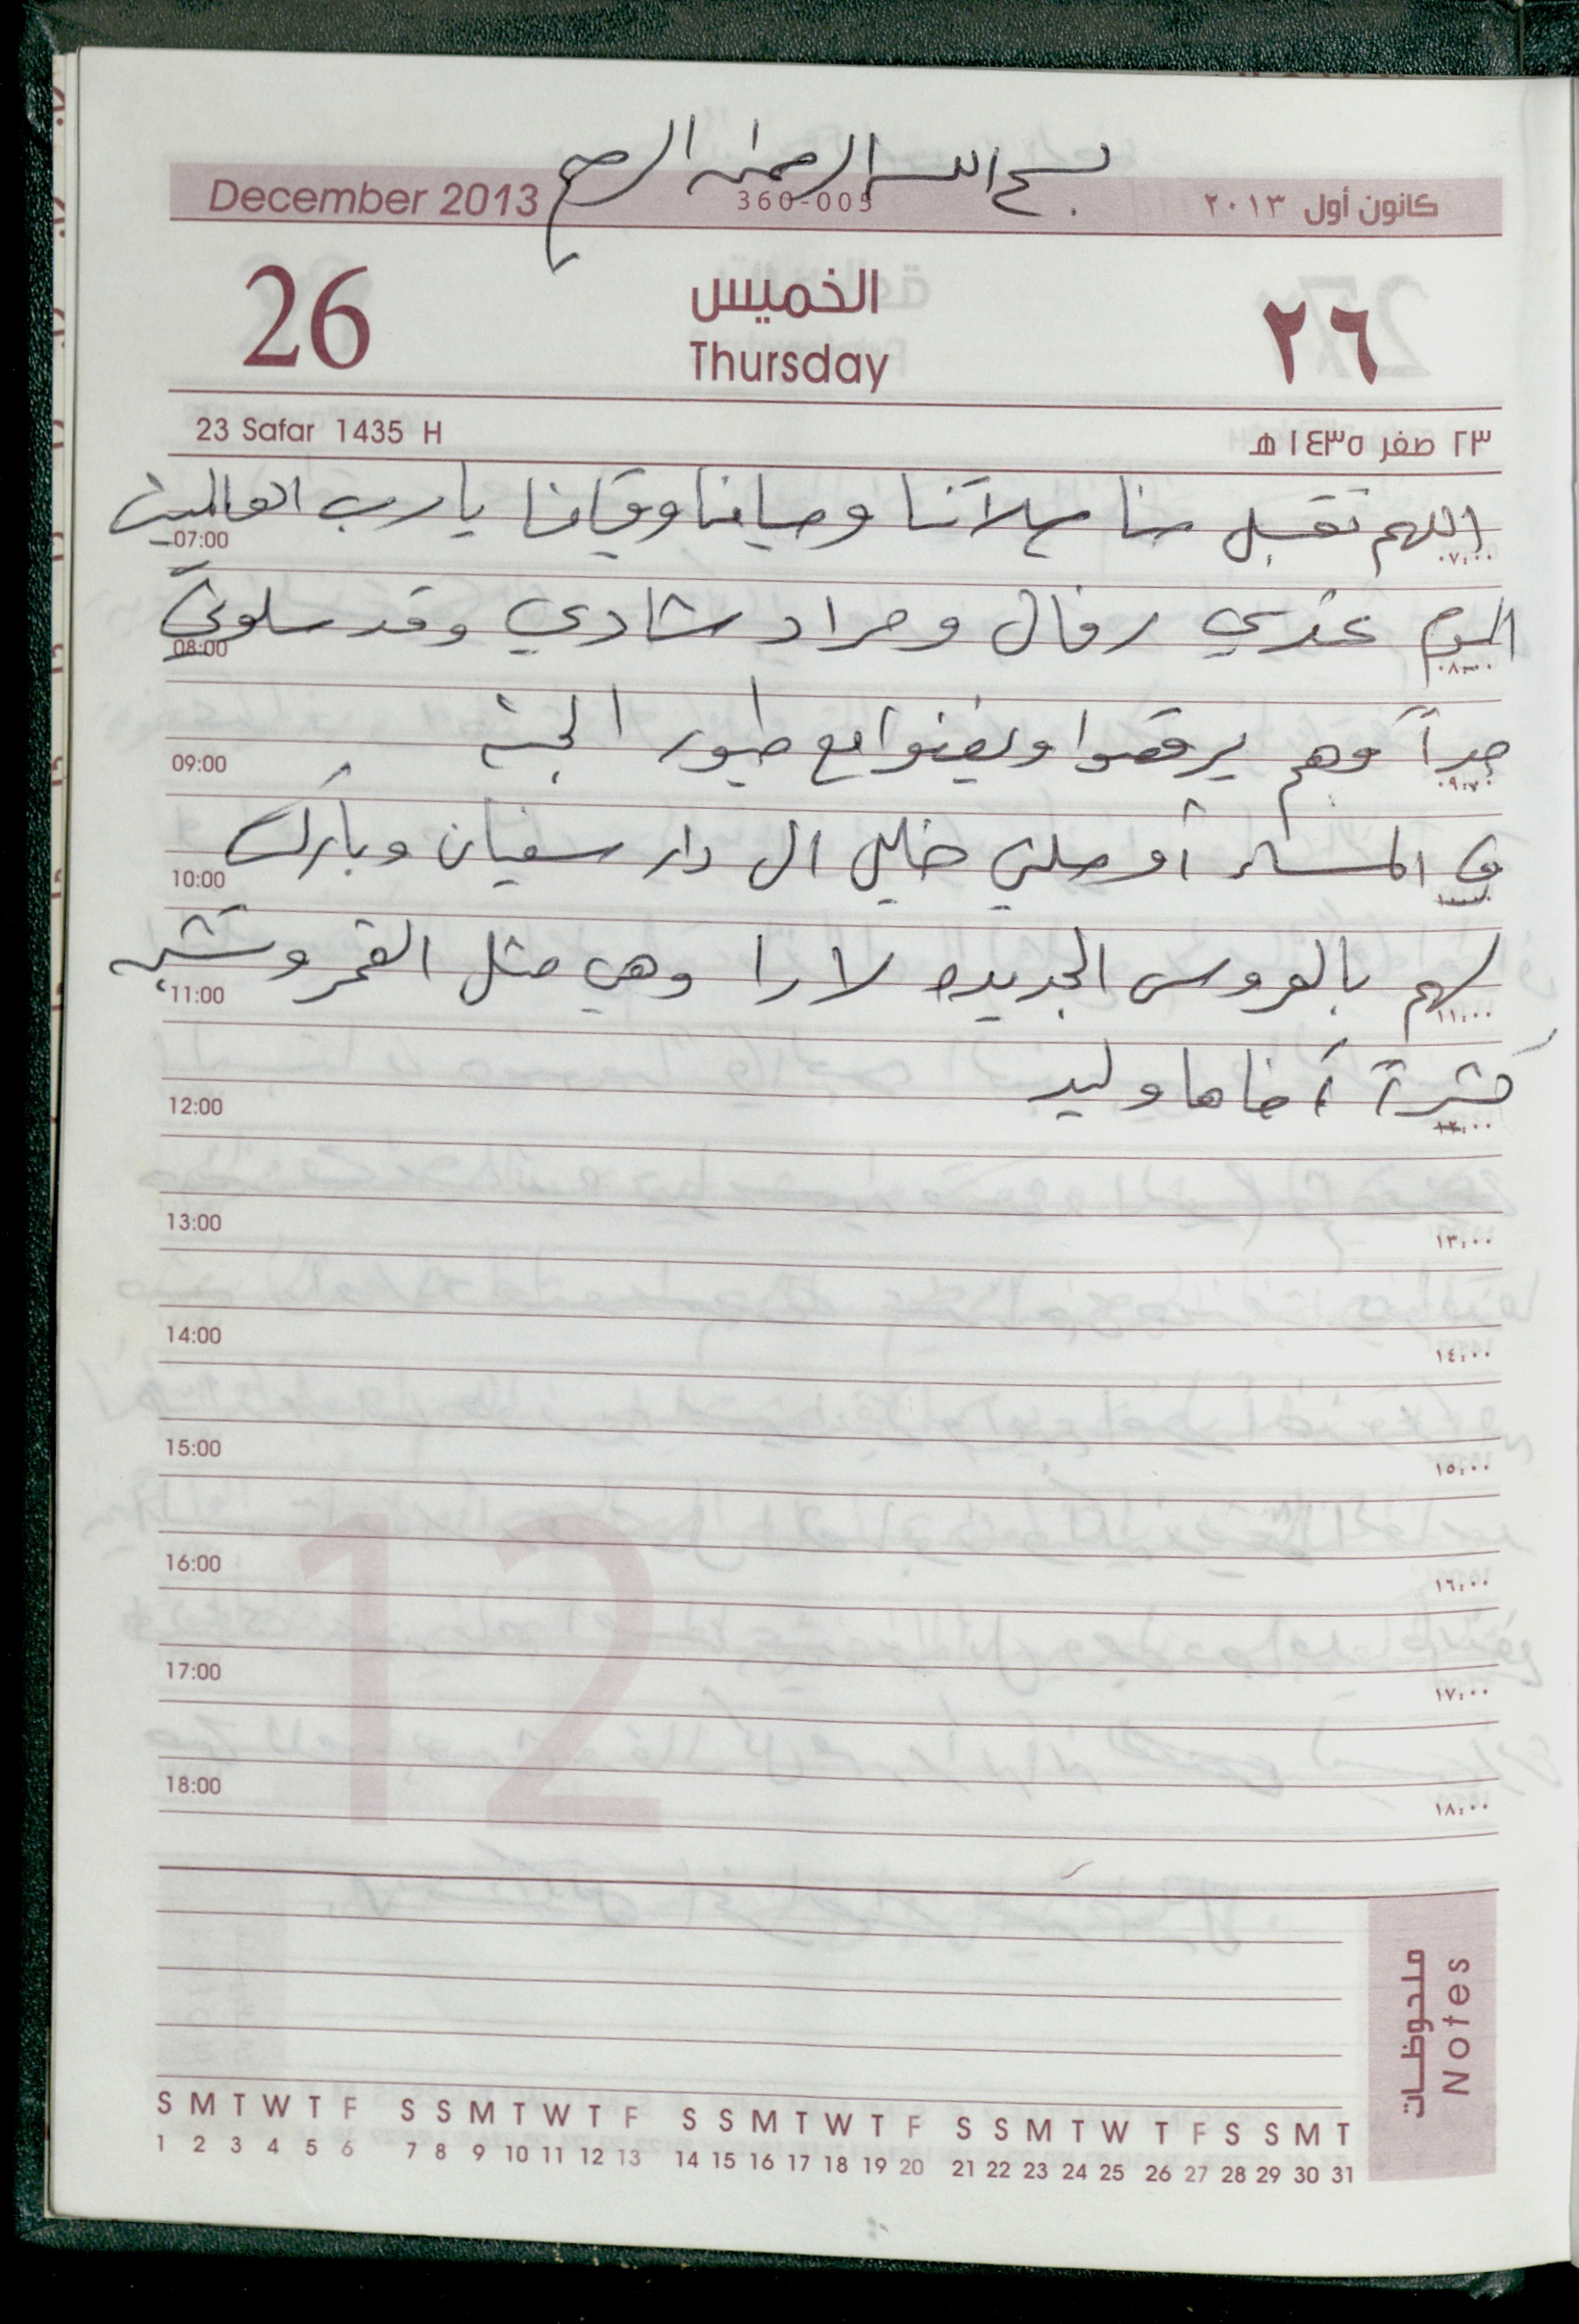 بسم الله الرحمن الرحيم
December 2013 360-005 كانون أول ٢٠١٣
26 الخميس ٢٦
Thursday
23 Safar 1435 H ٢٣ صفر ١٤٣٥ هـ
اللهم تقبل منا صلاتنا وصيامنا وقيامنا يا رب العالمين
07:00 ٠٧:٠٠
اليوم عندي رفال ومراد شادي وقد سلوني
08:00 ٠٨:٠٠
جداً وهم يرقصوا ويغنوا مع طيور الجنة
09:00 ٠٩:٠٠
في المساء أوصلني خليل الى دار سفيان وبارك
10:00 ١٠:٠٠
لهم بالعروس الجديده لارا وهي مثل القمر وتشبه
11:00 ١١:٠٠
كثيراً أخاها وليد
12:00 ١٢:٠٠
13:00 ١٣:٠٠
14:00 ١٤:٠٠
15:00 ١٥:٠٠
16:00 ١٦:٠٠
17:00 ١٧:٠٠
18:00 ١٨:٠٠
12
ملحوظات
Notes
S M T W T F S S M T W T F S S M T W T F S S M T W T F S S M T
1 2 3 4 5 6 7 8 9 10 11 12 13 14 15 16 17 18 19 20 21 22 23 24 25 26 27 28 29 30 31